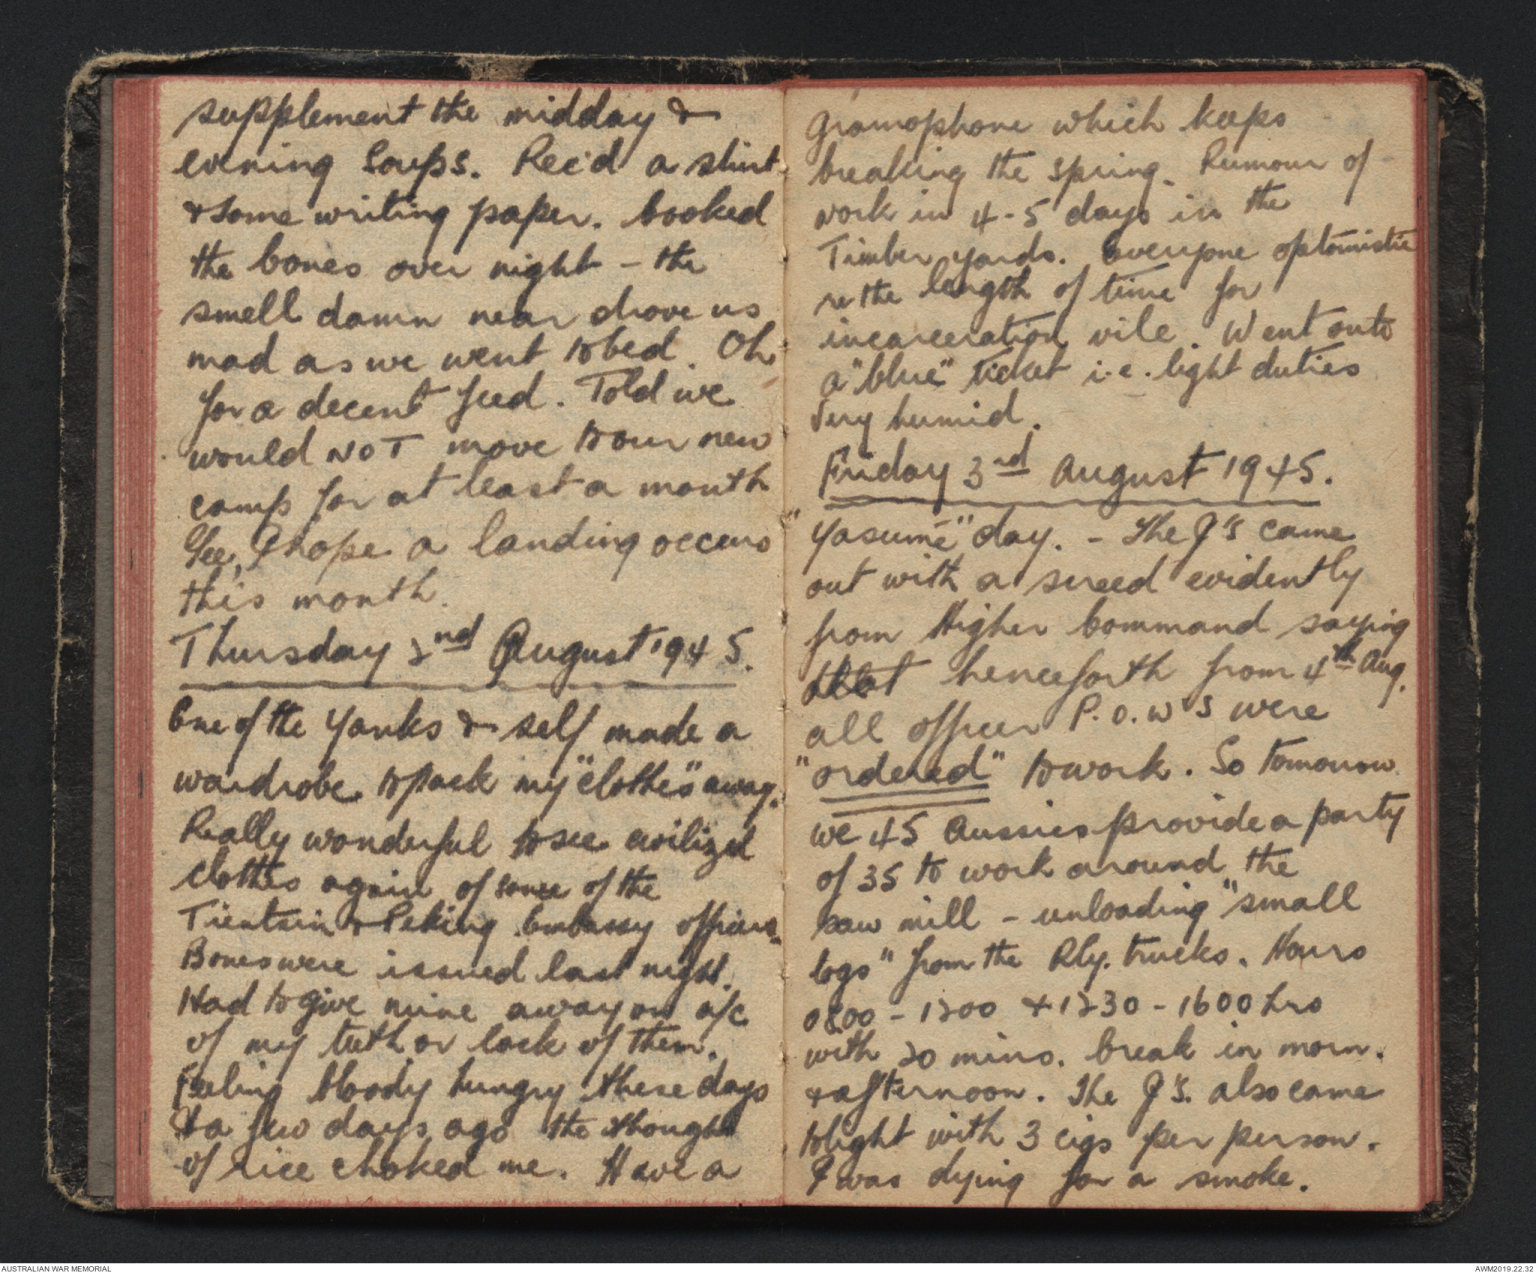 supplement the midday &
evening Soups. Rec'd a shirt
& some writing paper. Cooked
the bones over night - the
smell damn near drove us
mad as we went to bed. Oh
for a decent feed. Told we
would NOT move to our new
camp for at least a month
Gee, I hope a landing occurs
this month.
Thursday 2nd August 1945.
One of the Yanks & self made a
wardrobe to pack my "clothes" away.
Really wonderful to see civilized
clothes again of some of the
Tientsin & Peking Embassy officers.
Bones were issued last night.
Had to give mine away on a/c
of my teeth or lack of them.
Feeling bloody hungry these days
& a few days ago the thought
of rice choked me. Have a
gramophone which keeps
breaking the spring. Rumour of
work in 4-5 days in the
Timber yards. Everyone optomistic
re the length of time for
incarceration vile. Went onto
a "blue" ticket i.e. light duties
Very humid.
Friday 3rd August 1945.
"Yasumé" day. - The J's came
out with a screed evidently
from Higher Command saying
that henceforth from 4th Aug.
all officer P.O.W'S were
"ordered" to work. So tomorrow
we 45 Aussies provide a party
of 35 to work around the
saw mill - unloading "small
logs" from the Rly. trucks. Hours
0800 - 1200 & 1230 - 1600 hrs
with 20 mins. break in morn.
& afternoon. The J's. also came
to light with 3 cigs per person.
I was dying for a smoke.
AUSTRALIAN WAR MEMORIAL
AWM2019.22.32